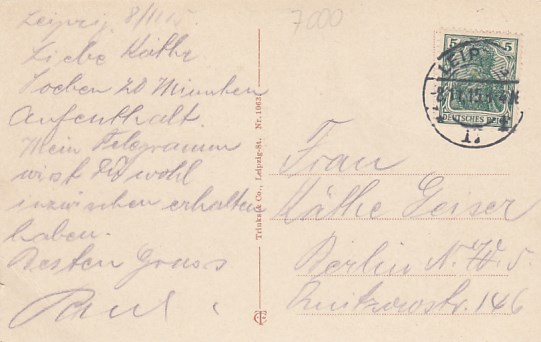 Leipzig, 8/11 15.
Liebe Käthe
Soeben 20 Minuten
Aufenthalt.
Mein Telegramm
wirst Du wohl
inzwischen erhalten
haben.
Besten Gruss
Paul
7000
Trinks & Co., Leipzig-St. Nr. 1063
5 5
LEIPZIG
8.11.15.
DEUTSCHES REICH
Frau
Käthe Geiser
Berlin N.W. 5
Quitzowstr. 146